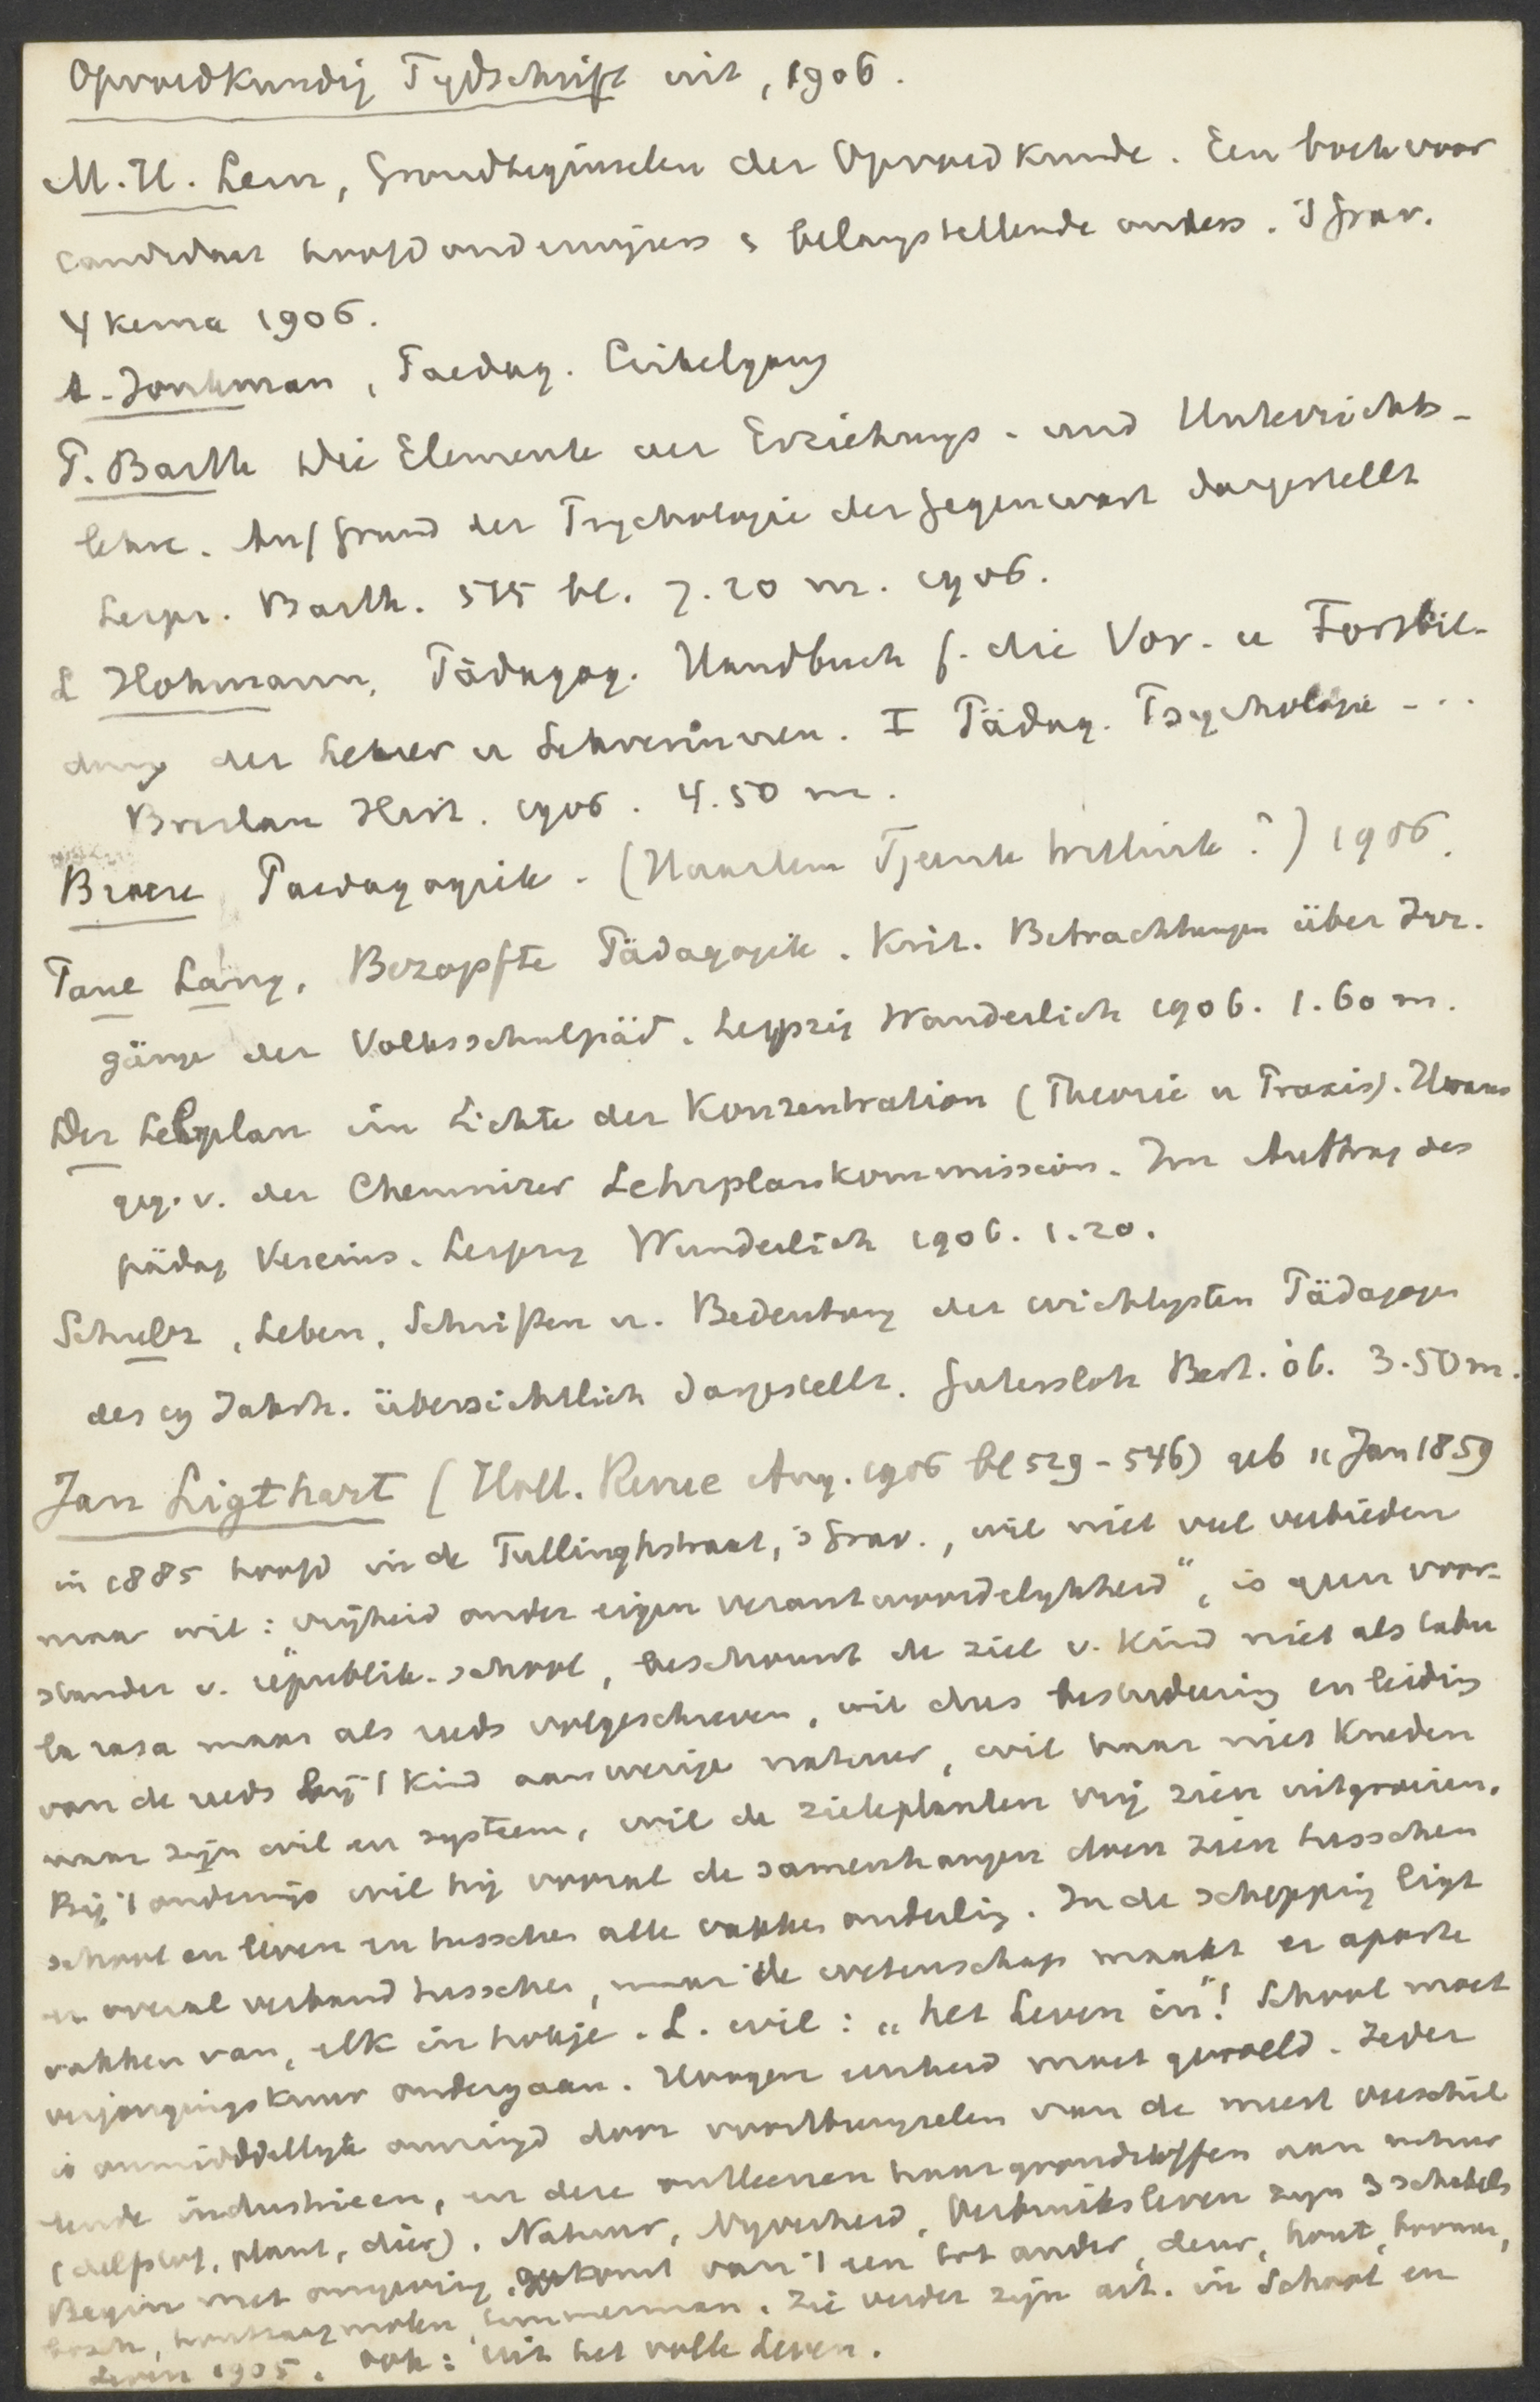 Opvoedkundig Tydschrift uit, 1906.
M.H. Lem, Grondbeginselen der Opvoedkunde. Een boek voor
candidaat hoofdonderwijzers & belangstellende ouders. 's Grav.
Ykema 1906.
A. Jonkman, Paedag. Cirkelgang
P. Barth Die Elemente der Erziehungs- und Unterrichts-
lehre. Auf Grund der Psychologie der Gegenwart dargestellt
Leipz. Barth. 515 bl. 7.20 m. 1906.
L Hohmann, Pädagog. Handbuch f. die Vor- u Fortbil-
dung der Lehrer u Lehrerinnen. I Pädag. Psychologie ...
Breslau Hirt. 1906. 4.50 m.
Paedagogiek. (Haarlem Tjeenk Willink?) 1906.
Paul Lang, Bezopfte Pädagogik. Krit. Betrachtungen über Irr-
gänge der Volksschulpäd. Leipzig Wunderlich 1906. 1.60 m.
Der Lehrplan im Lichte der Konzentration (Theorie u Praxis). Heraus
geg. v. der Chemnitzer Lehrplankommission. Im Auftrag des
pädag Vereins. Leipzig Wunderlich 1906. 1.20.
Schulz, Leben, Schriften u. Bedeutung der wichtigsten Pädagogen
des 19 Jahrh. übersichtlich dargestellt. Gutersloh Bert. 06. 3.50 m.
Jan Ligthart (Holl. Revue Aug. 1906 bl 529-546) geb 11 Jan 1859
in 1885 hoofd in de Tullinghstraat, 's Grav., wil niet veel verbieden
maar wil: vrijheid onder eigen verantwoordelykheid", is geen voor-
stander v. "republiek-school, beschouwt de ziel v. kind niet als tabu
la rasa maar als reeds volgeschreven, wil dus bestudeering en leiding
van de reeds bij 't kind aanwezige natuur, wil haar niet kneden
naar zijn wil en systeem, wil de zieleplanten vrij zien uitgroeien.
Bij 't onderwijs wil hij vooral de samenhangen doen zien tusschen
school en leven en tusschen alle vakken onderling. In de schepping ligt
er overal verband tusschen, maar de wetenschap maakt er aparte
vakken van, elk in hokje. L. wil: "het Leven in"! School moet
verjongingskuur ondergaan. Hoogere eenheid moet gevoeld. Ieder
is onmiddellyk omringd door voortbrengselen van de meest verschil
lende industrieen, en deze ontleenen haar grondstoffen aan natuur
(delfstof, plant, dier). Natuur, Nyverheid, Verbruiksleven zyn 3 schakels
Begin met omgeving. komt van 't een tot ander, deur, hout, boomen,
bosch, houtzaagmolen, timmerman. Zie verder zijn art. in School en
Leven 1905. ook: uit het volle Leven.